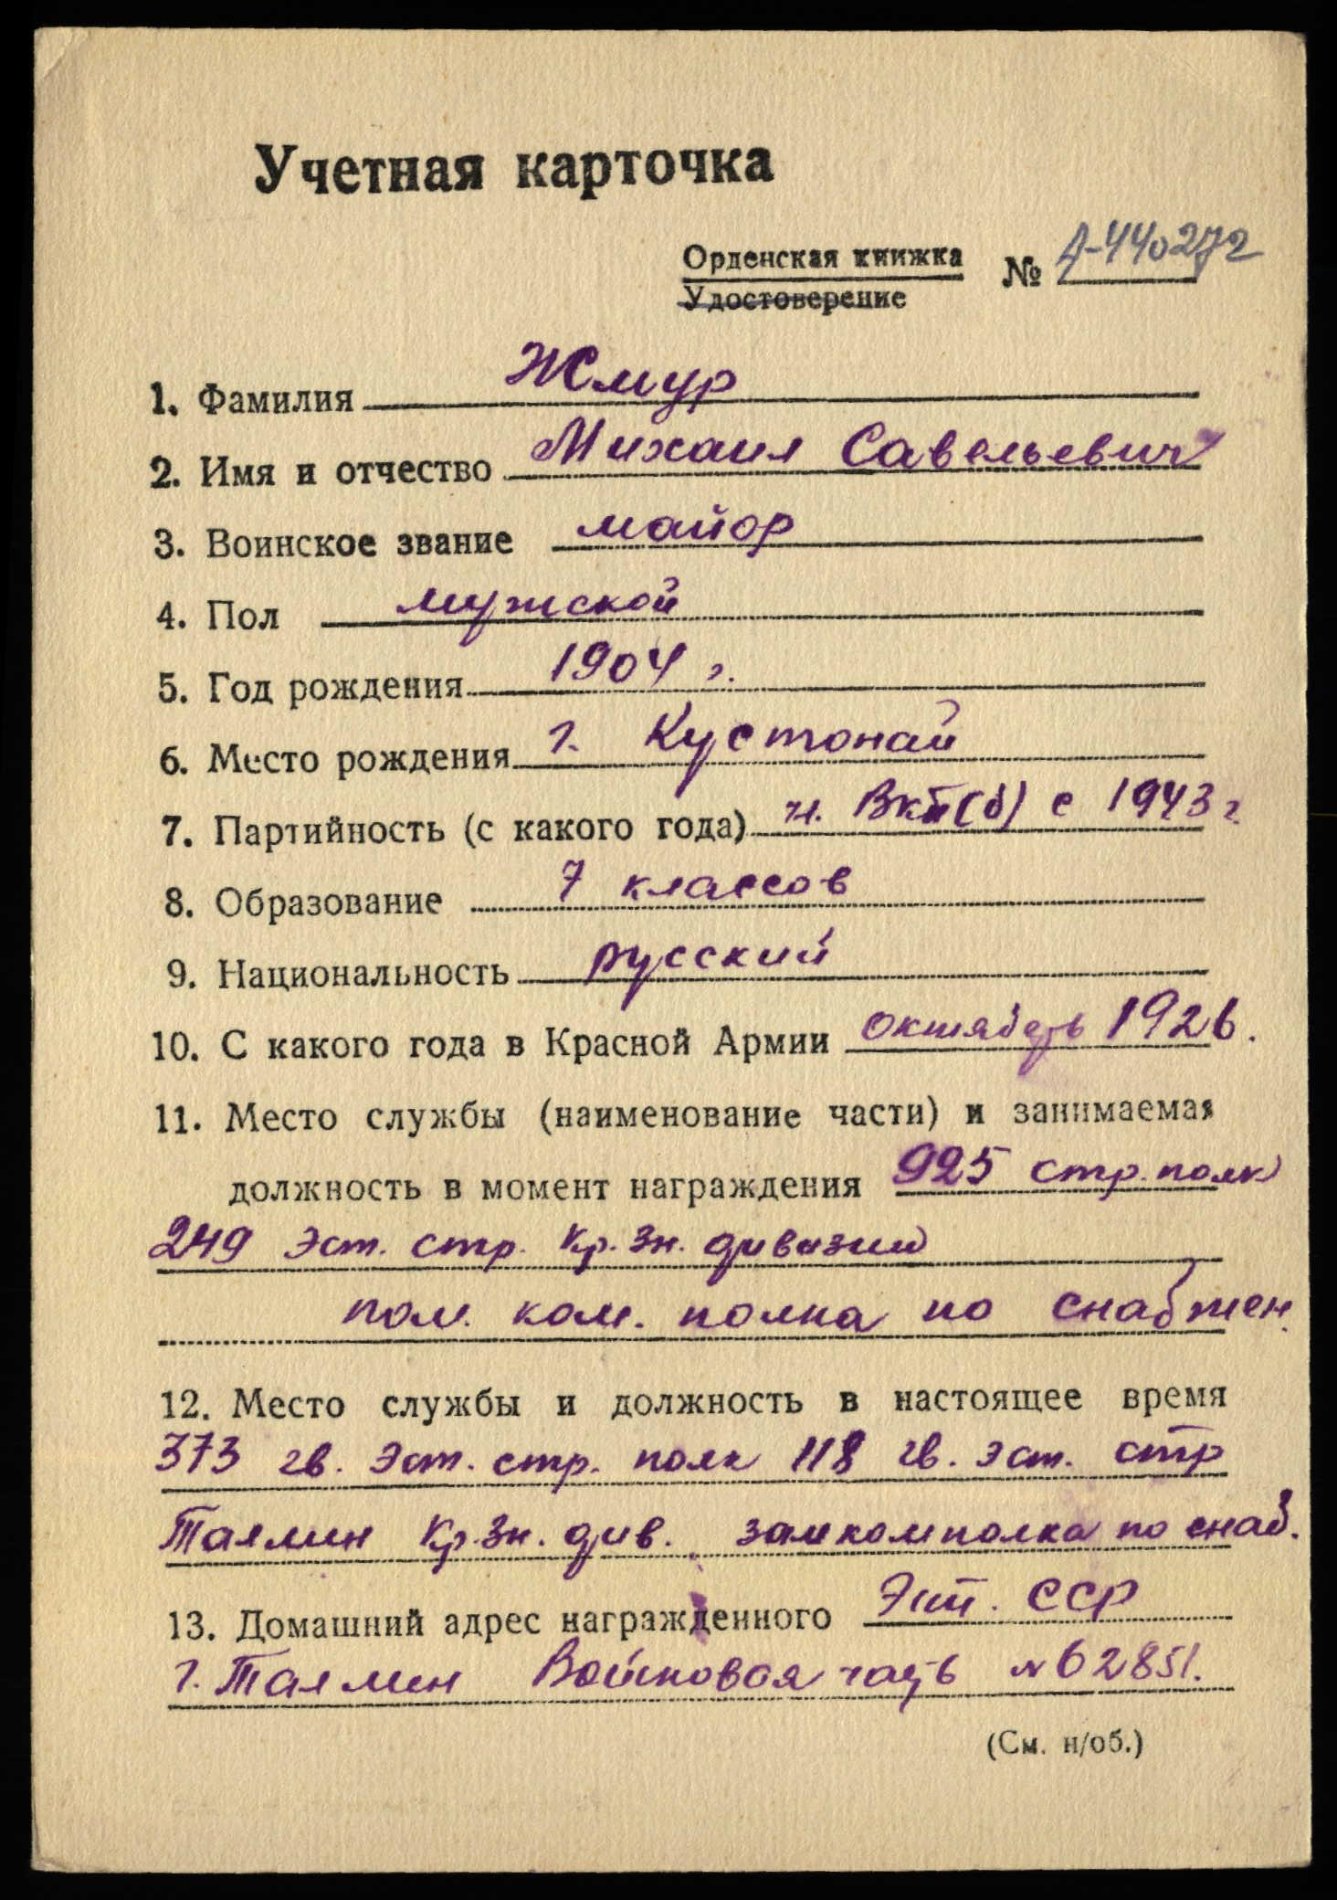 Учетная карточка
Орденская книжка № Д-440272
Удостоверение
1. Фамилия Жмур
2. Имя и отчество Михаил Савельевич
3. Воинское звание майор
4. Пол мужской
5. Год рождения 1904 г.
6. Место рождения г. Кустонай
7. Партийность (с какого года) чл. ВКП(б) с 1943 г.
8. Образование 7 классов
9. Национальность русский
10. С какого года в Красной Армии октябрь 1926.
11. Место службы (наименование части) и занимаемая
должность в момент награждения 925 стр. полк
249 Эст. стр. Кр. Зн. дивизии
пом. ком. полка по снабжен.
12. Место службы и должность в настоящее время
373 гв. Эст. стр. полк 118 гв. эст. стр
Таллин Кр. Зн. див. замкомполка по снаб.
13. Домашний адрес награжденного Эст. ССР
г. Таллин Войсковая часть № 62851.
(См. н/об.)